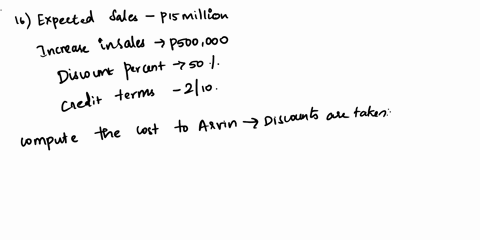 16) Expected Sales - P15 million
Increase in sales → P500,000
Discount percent → 50 %.
Credit terms - 2/10.
compute the cost to Arvin → Discounts are taken: